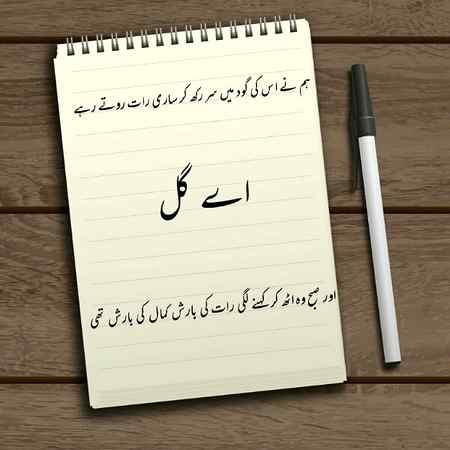 ہم نے اس کی گود میں سر رکھ کر ساری رات روتے رہے
اے گل
اور صبح وہ اٹھ کر کہنے لگی رات کی بارش کمال کی بارش تھی